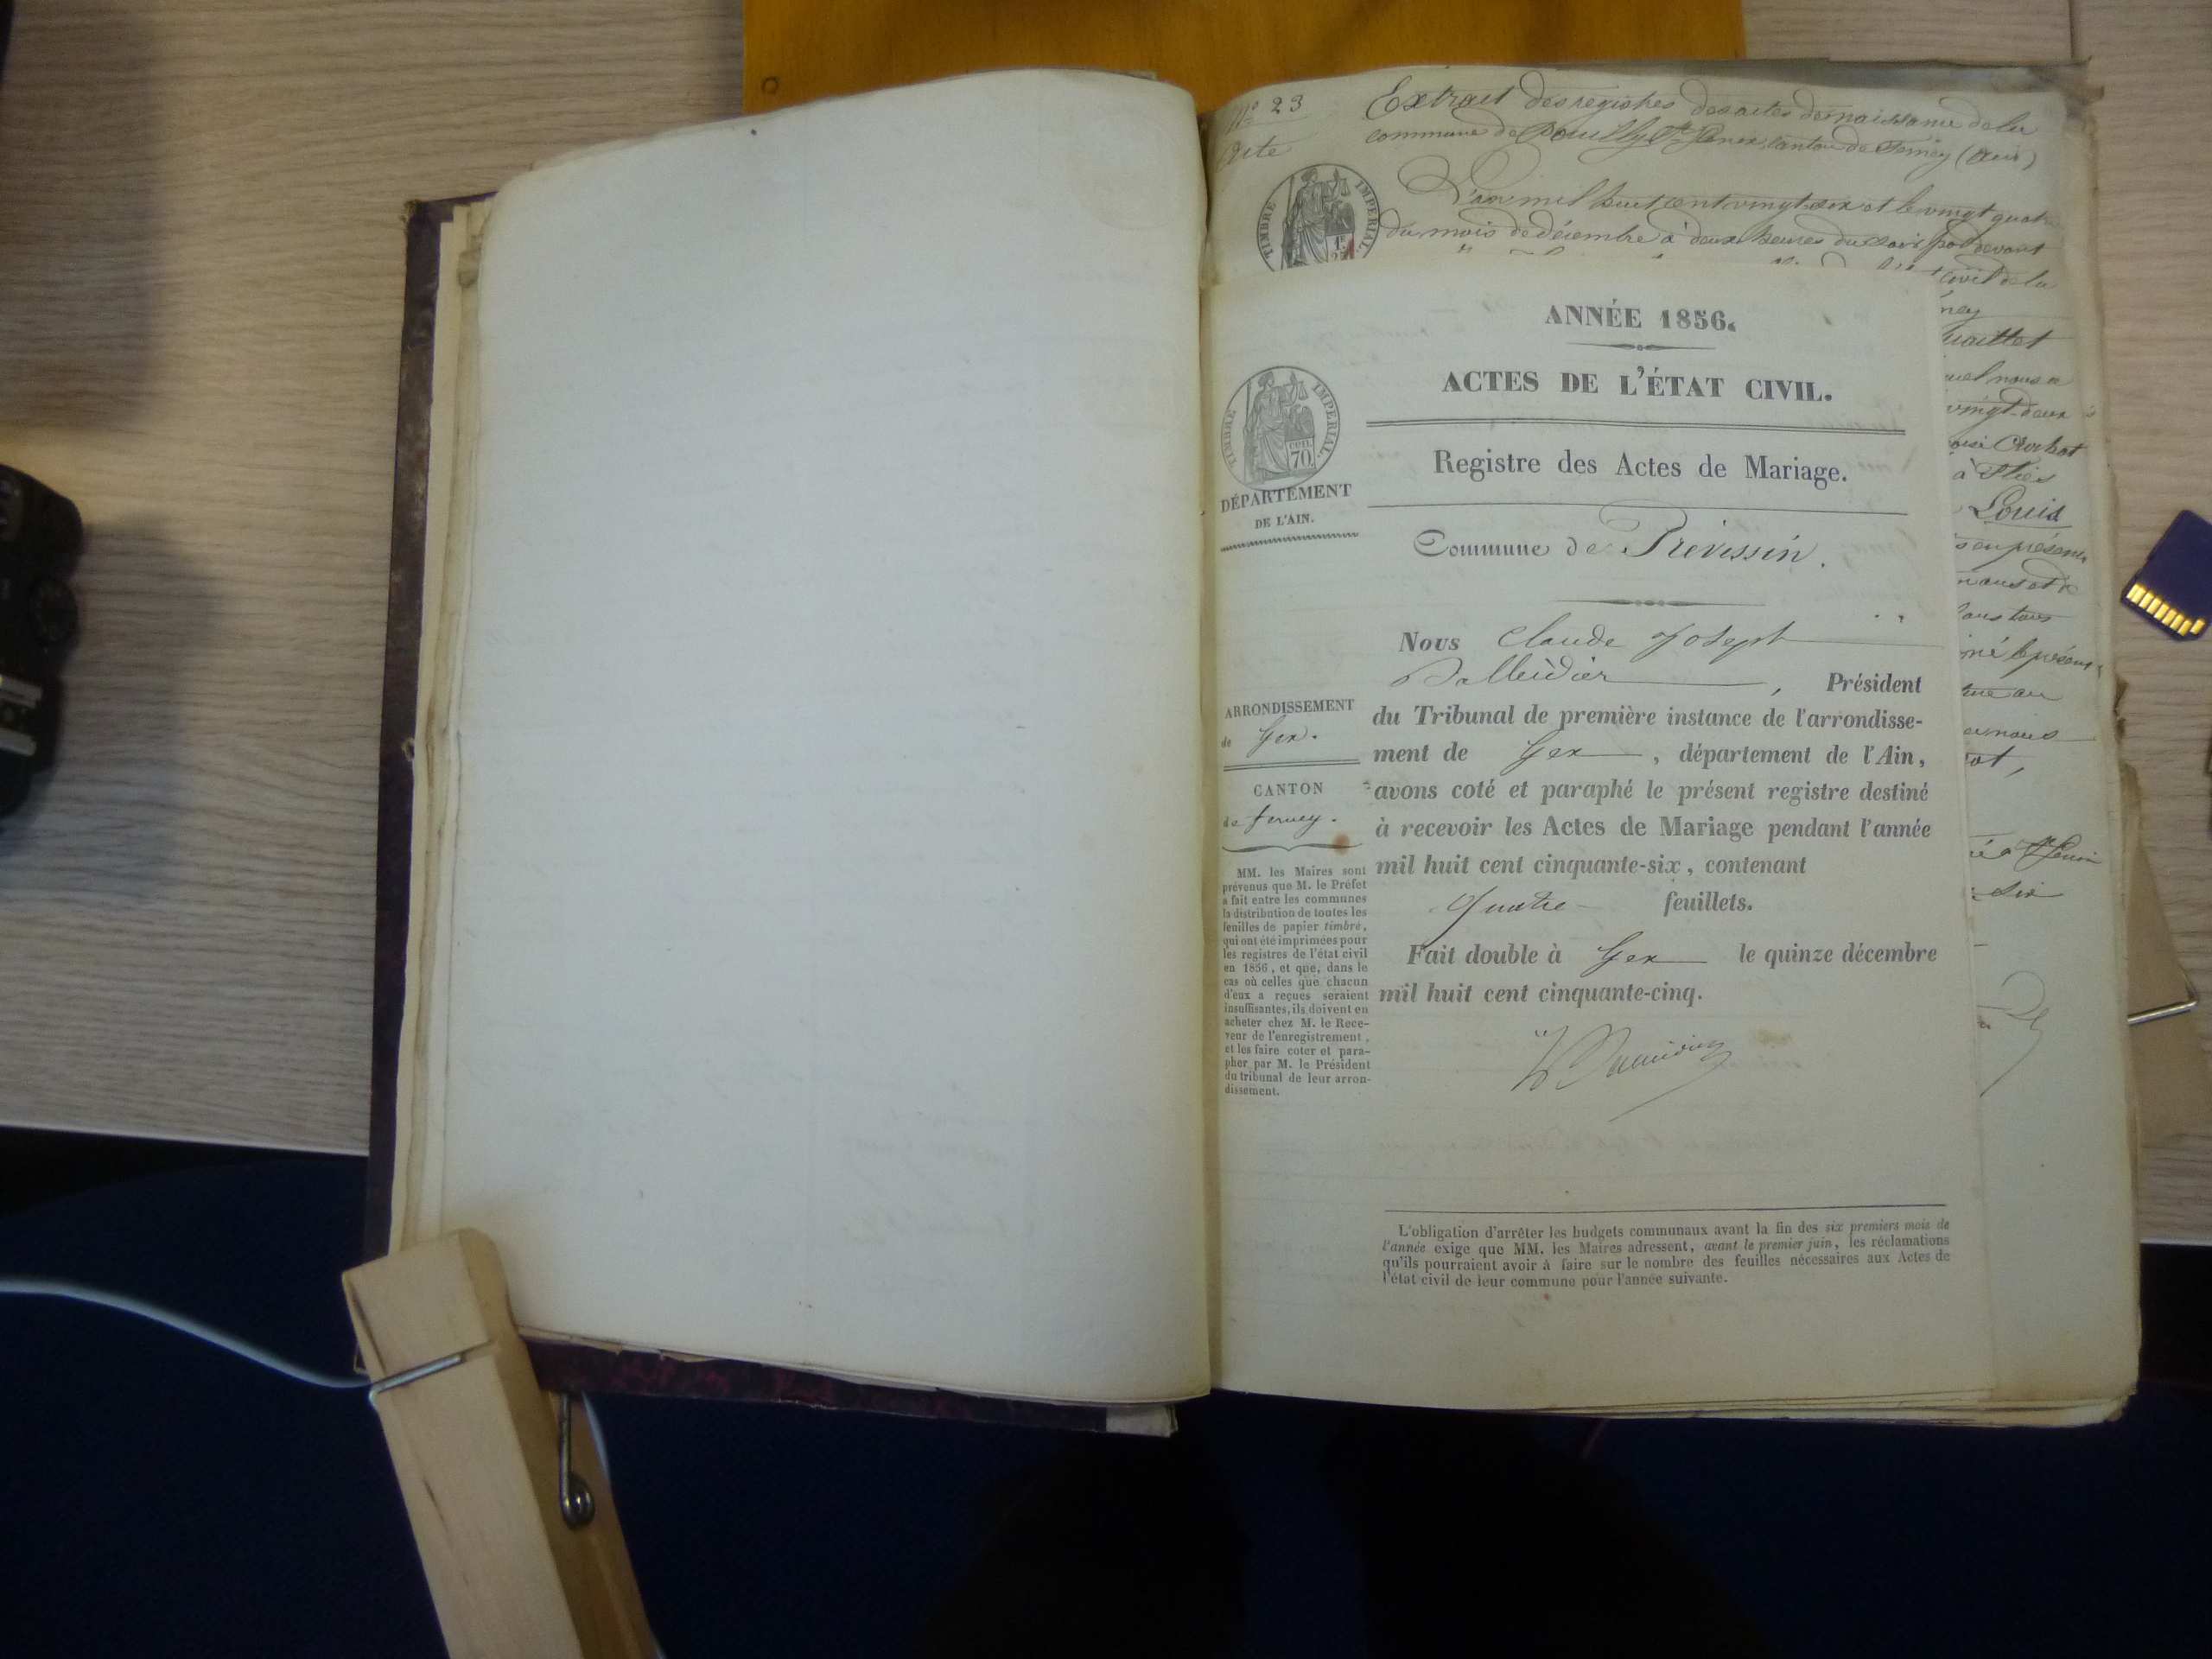 N° 23
Extrait des registres des actes de naissance de la
commune de Pouilly St Genix, canton de Ferney (Ain)
TIMBRE IMPERIAL
L'an mil huit cent vingt six et le vingt quatre
du mois de décembre à deux heures du soir par devant
civil de la
ney
nous a
vingt-deux
à Flies
Louis
ANNÉE 1856.
ACTES DE L'ÉTAT CIVIL.
TIMBRE IMPERIAL.
CEN.
70
DÉPARTEMENT
DE L'AIN.
Registre des Actes de Mariage.
Commune de Prévessin.
Nous Claude Joseph
Balleidier, Président
du Tribunal de première instance de l'arrondisse-
ment de Gex, département de l'Ain,
avons coté et paraphé le présent registre destiné
à recevoir les Actes de Mariage pendant l'année
mil huit cent cinquante-six, contenant
Quatre feuillets.
Fait double à Gex le quinze décembre
mil huit cent cinquante-cinq.
ARRONDISSEMENT
de Gex.
CANTON
de Ferney.
MM. les Maires sont
prévenus que M. le Préfet
a fait entre les communes
la distribution de toutes les
feuilles de papier timbré,
qui ont été imprimées pour
les registres de l'état civil
en 1856, et que, dans le
cas où celles que chacun
d'eux a reçues seraient
insuffisantes, ils doivent en
acheter chez M. le Rece-
veur de l'enregistrement,
et les faire coter et para-
pher par M. le Président
du tribunal de leur arron-
dissement.
L'obligation d'arrêter les budgets communaux avant la fin des six premiers mois de
l'année exige que MM. les Maires adressent, avant le premier juin, les réclamations
qu'ils pourraient avoir à faire sur le nombre des feuilles nécessaires aux Actes de
l'état civil de leur commune pour l'année suivante.